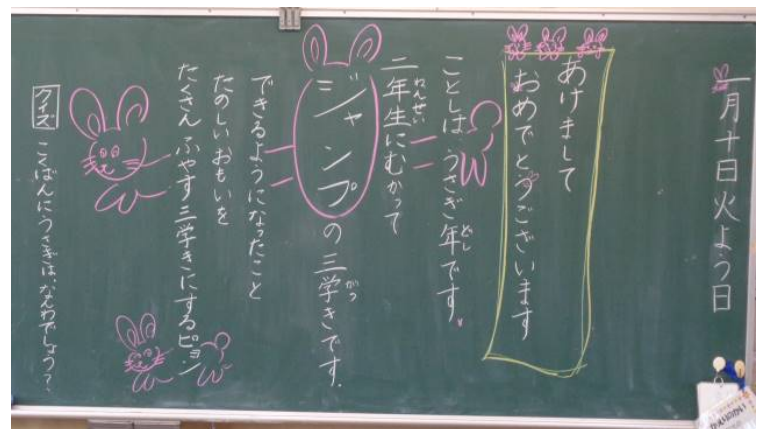 一月十日火よう日
あけまして
おめでとうございます
ことしは、うさぎ年です。
どし
二年生にむかって
ねんせい
ミニジャンプの三学きです。
がっ
できるようになったこと
たのしいおもいを
たくさんふやす三学きにするピョン
クイズ こくばんにうさぎは、なんわでしょう?